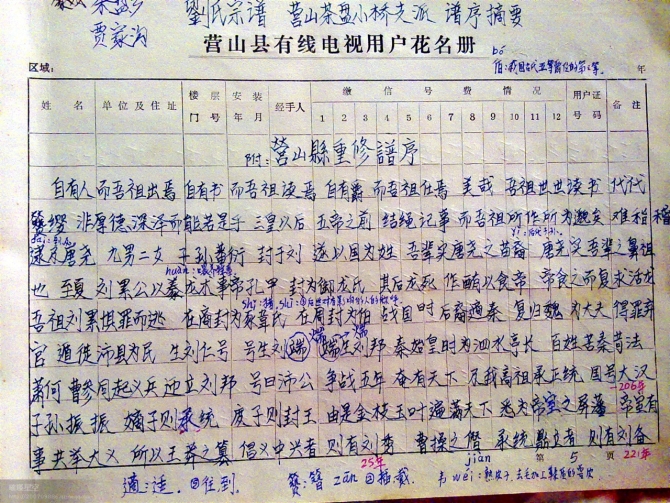 茶盘乡
贾家沟
劉氏宗谱 营山茶盘小桥支派 谱序摘要
营山县有线电视用户花名册
bó
伯:我国古代五等爵位的第三等。
区域: 年
姓名 单位及住址 楼层门号 安装年月 经手人 缴信号费情况 用户证号码 备注
1 2 3 4 5 6 7 8 9 10 11 12
附:营山縣重修譜序
自有人而吾祖出焉 自有书而吾祖读焉 自有爵而吾祖仕焉 美哉 吾祖世世读书 代代
簪缨 非厚德深泽而能若是乎 三皇以后 五帝之前 结绳记事 而吾祖所作所为 难稽
逮及唐尧 九男二女 子孙蕃衍 封于刘 遂以国为姓 吾辈实唐尧之苗裔 唐尧实吾辈之鼻祖
huàn:
也 至夏 刘累公以豢龙术事帝孔甲 封为御龙氏 其后龙死 作醢以食帝 帝食之而复求活龙
吾祖刘累惧罪而逃 在商封为豕韋氏 在周封为伯 战国时后裔適秦 复归魏 为大夫 得罪弃
官 遁徙沛县为民 生刘仁号 号生刘端 端生刘邦 秦始皇时为泗水亭长 百姓苦秦苛法
萧何 曹参同起义兵 迎立刘邦 号曰沛公 争战五年 奋有天下 及我高祖承正统 国号大汉
-206年
子孙振振 嫡子则承统 庶子则封王 由是金枝玉叶遍满天下 悉为帝室之屏藩 帝室有
事共举大义 所以王莽之篡 倡义中兴者 则有刘秀 曹操之僭 承统鼎立者 则有刘备
25年
jiàn
第 5 页
221年
適:适. ②往.到.
簪:簪 zān ②插戴
韦 wéi: